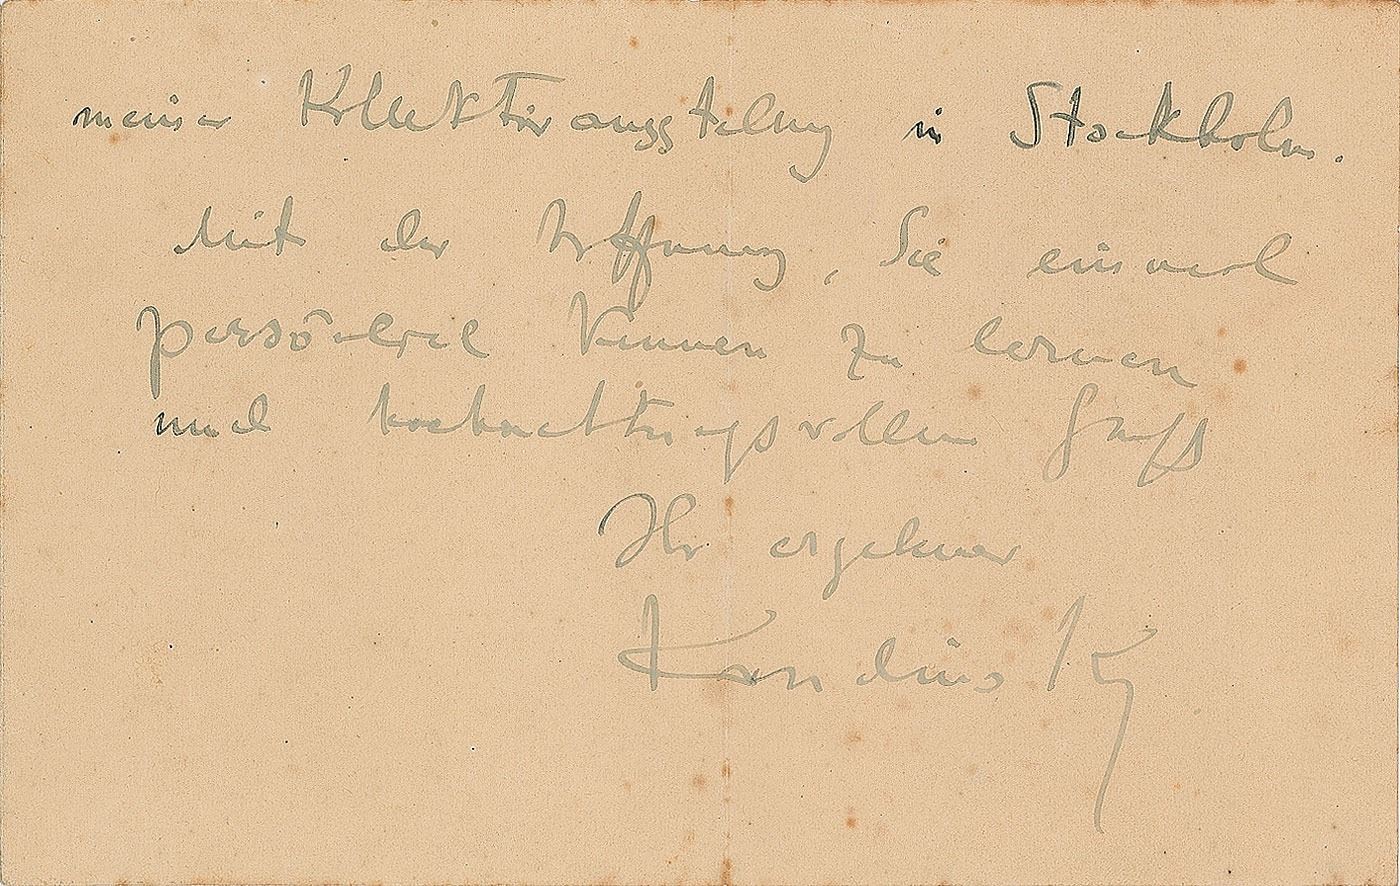 meiner Kollektivausstellung in Stockholm.
Mit der Hoffnung, Sie einmal
persönlich kennen zu lernen
und hochachtungsvollem Gruß
Ihr ergebener
Kandinsky